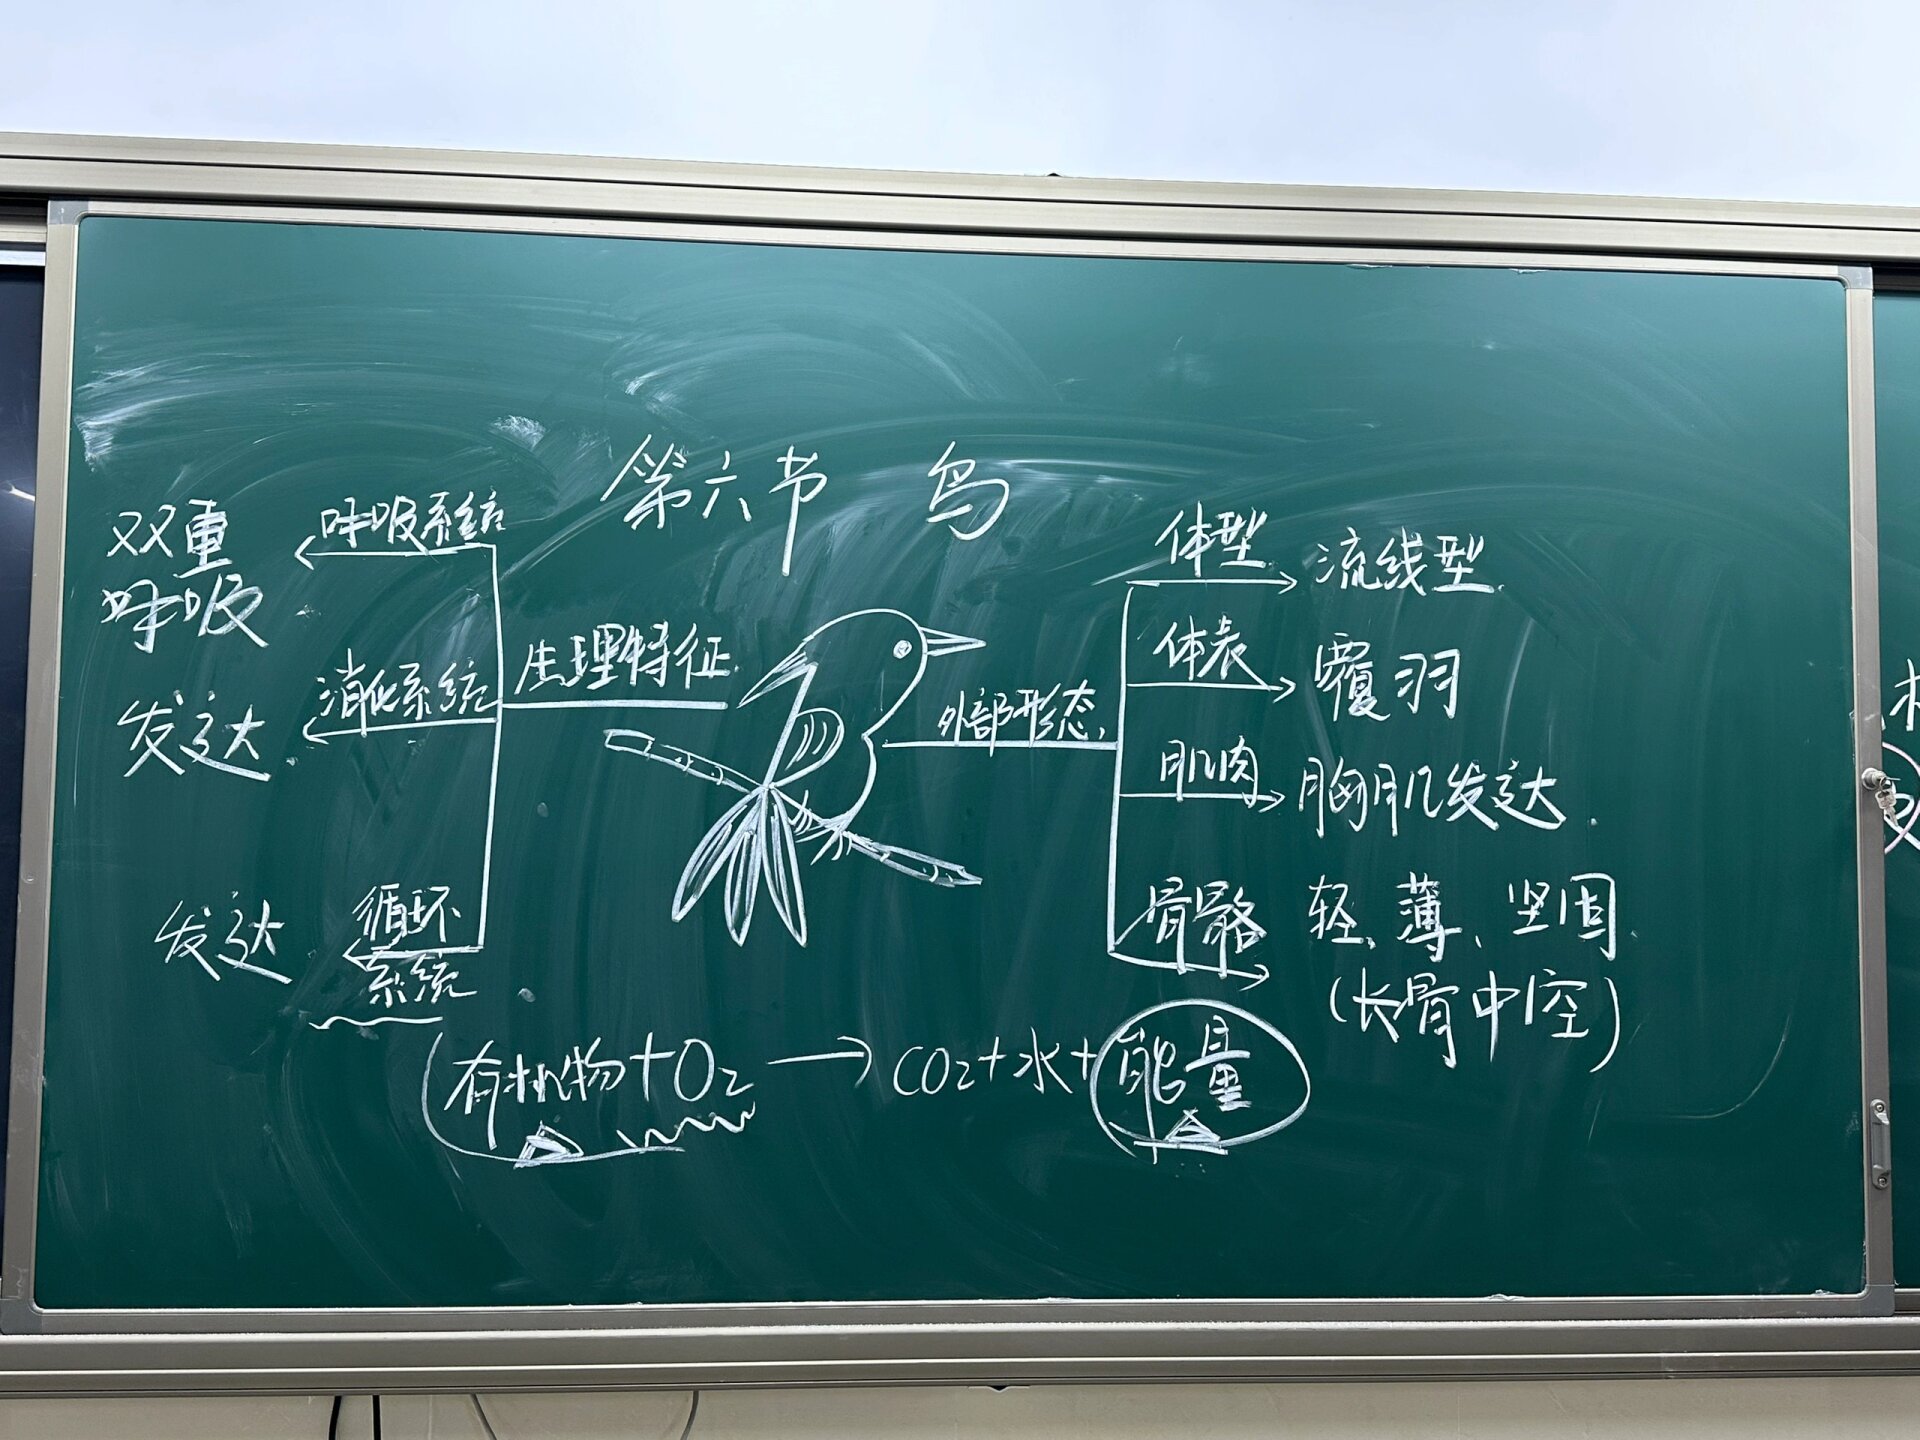 第六节 鸟
呼吸系统
双重
呼吸
消化系统
发达
循环
系统
发达
生理特征
外部形态
体型
流线型
体表
覆羽
肌肉
胸肌发达
骨骼
轻、薄、坚固
(长骨中空)
有机物+O₂→CO₂+水+能量